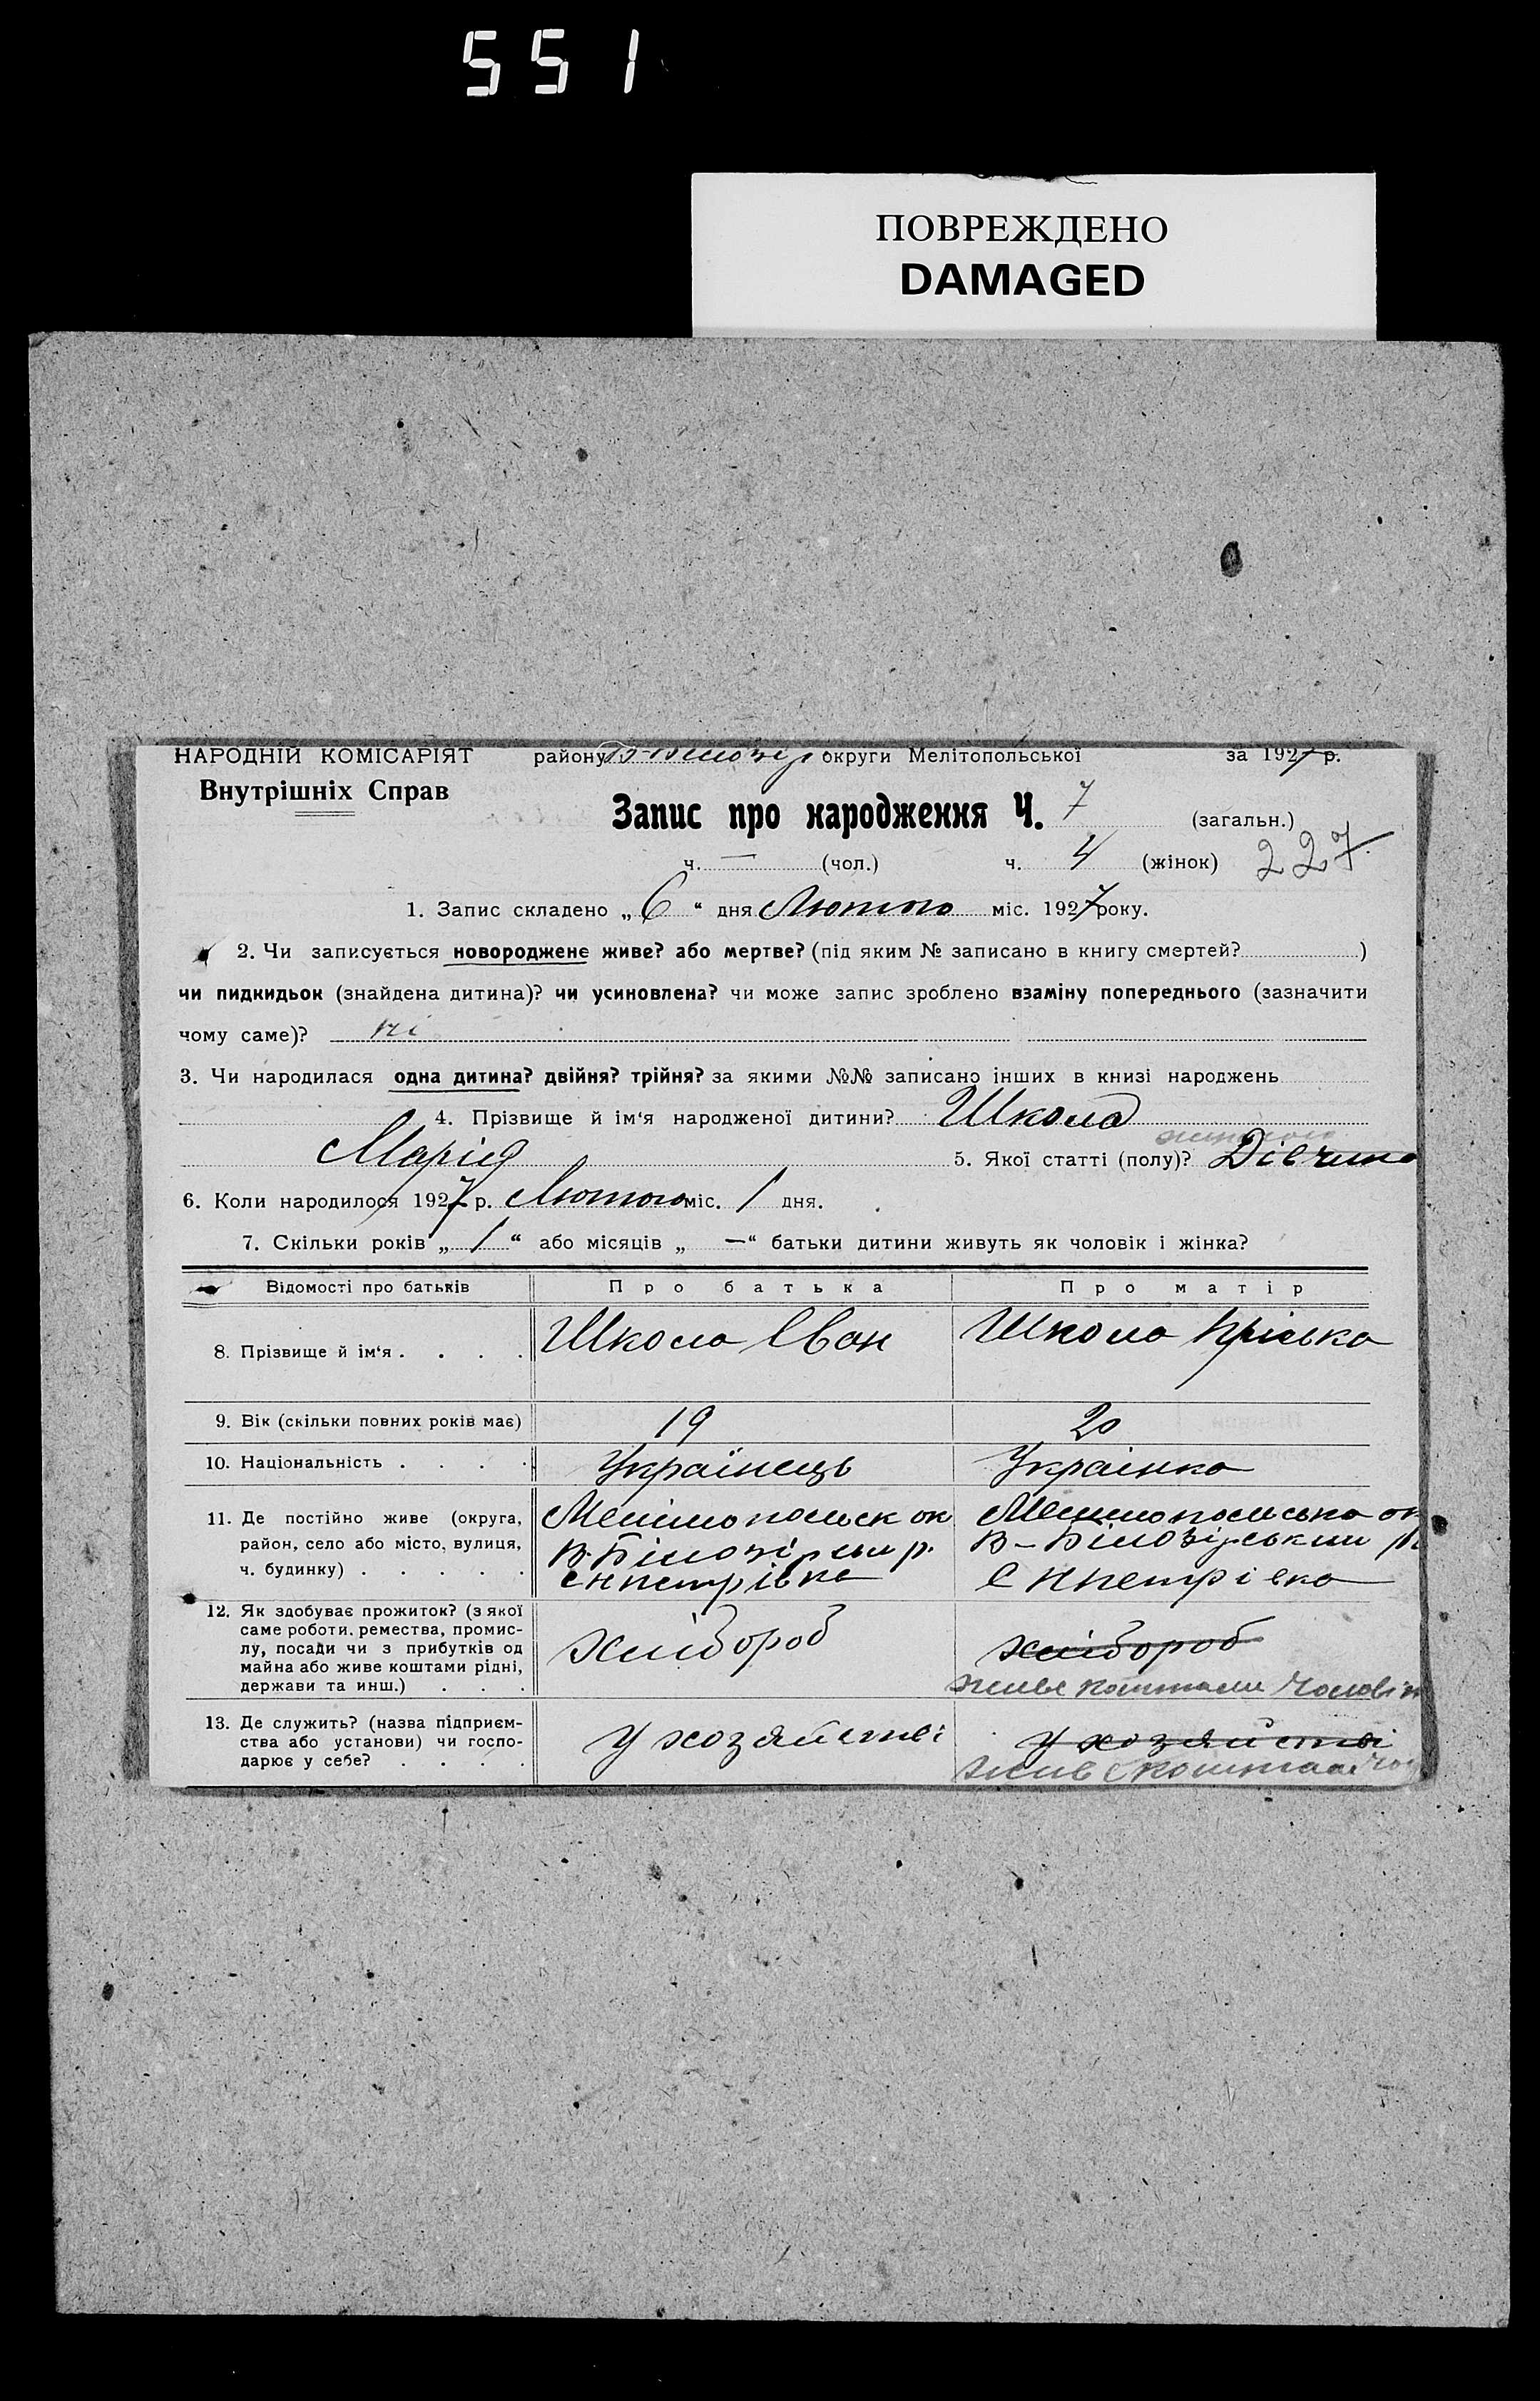 551
ПОВРЕЖДЕНО
DAMAGED
НАРОДНІЙ КОМІСАРІЯТ району В-Білозір округи Мелітопольської за 1927 р.
Внутрішніх Справ
Запис про народження Ч. 7 (загальн.)
ч. — (чол.) ч. 4 (жінок) 227
1. Запис складено „ 6 “ дня Лютого міс. 1927 року.
2. Чи записується новороджене живе? або мертве? (під яким № записано в книгу смертей? )
чи пидкидьок (знайдена дитина)? чи усиновлена? чи може запис зроблено взаміну попереднього (зазначити
чому саме)? ні
3. Чи народилася одна дитина? двійня? трійня? за якими №№ записано інших в книзі народжень
4. Прізвище й ім‘я народженої дитини? Школа
Марія 5. Якої статті (полу)? Дівчина
6. Коли народилося 1927 р. Лютого міс. 1 дня.
7. Скільки років „ 1 “ або місяців „ — “ батьки дитини живуть як чоловік і жінка?
Відомості про батьків Про батька Про матір
8. Прізвище й ім‘я . . . . Школа Іван Школа
9. Вік (скільки повних років має) 19 20
10. Національність . . . . Українець Украінка
11. Де постійно живе (округа, район, село або місто, вулиця, ч. будинку) . . . . .
Мелітопольск ок
В-Білозірськи р.
с Нпетрівка
Мелітопольська ок
В-Білозірський
с Нпетрівка
12. Як здобуває прожиток? (з якої
саме роботи, ремества, промис-
лу, посади чи з прибутків од
майна або живе коштами рідні,
держави та инш.) . . .
хлібороб
хлібороб
живе коштами чоловік
13. Де служить? (назва підприєм-
ства або установи) чи госпо-
дарює у себе? . . . .
У хозяйстві
У хозяйстві